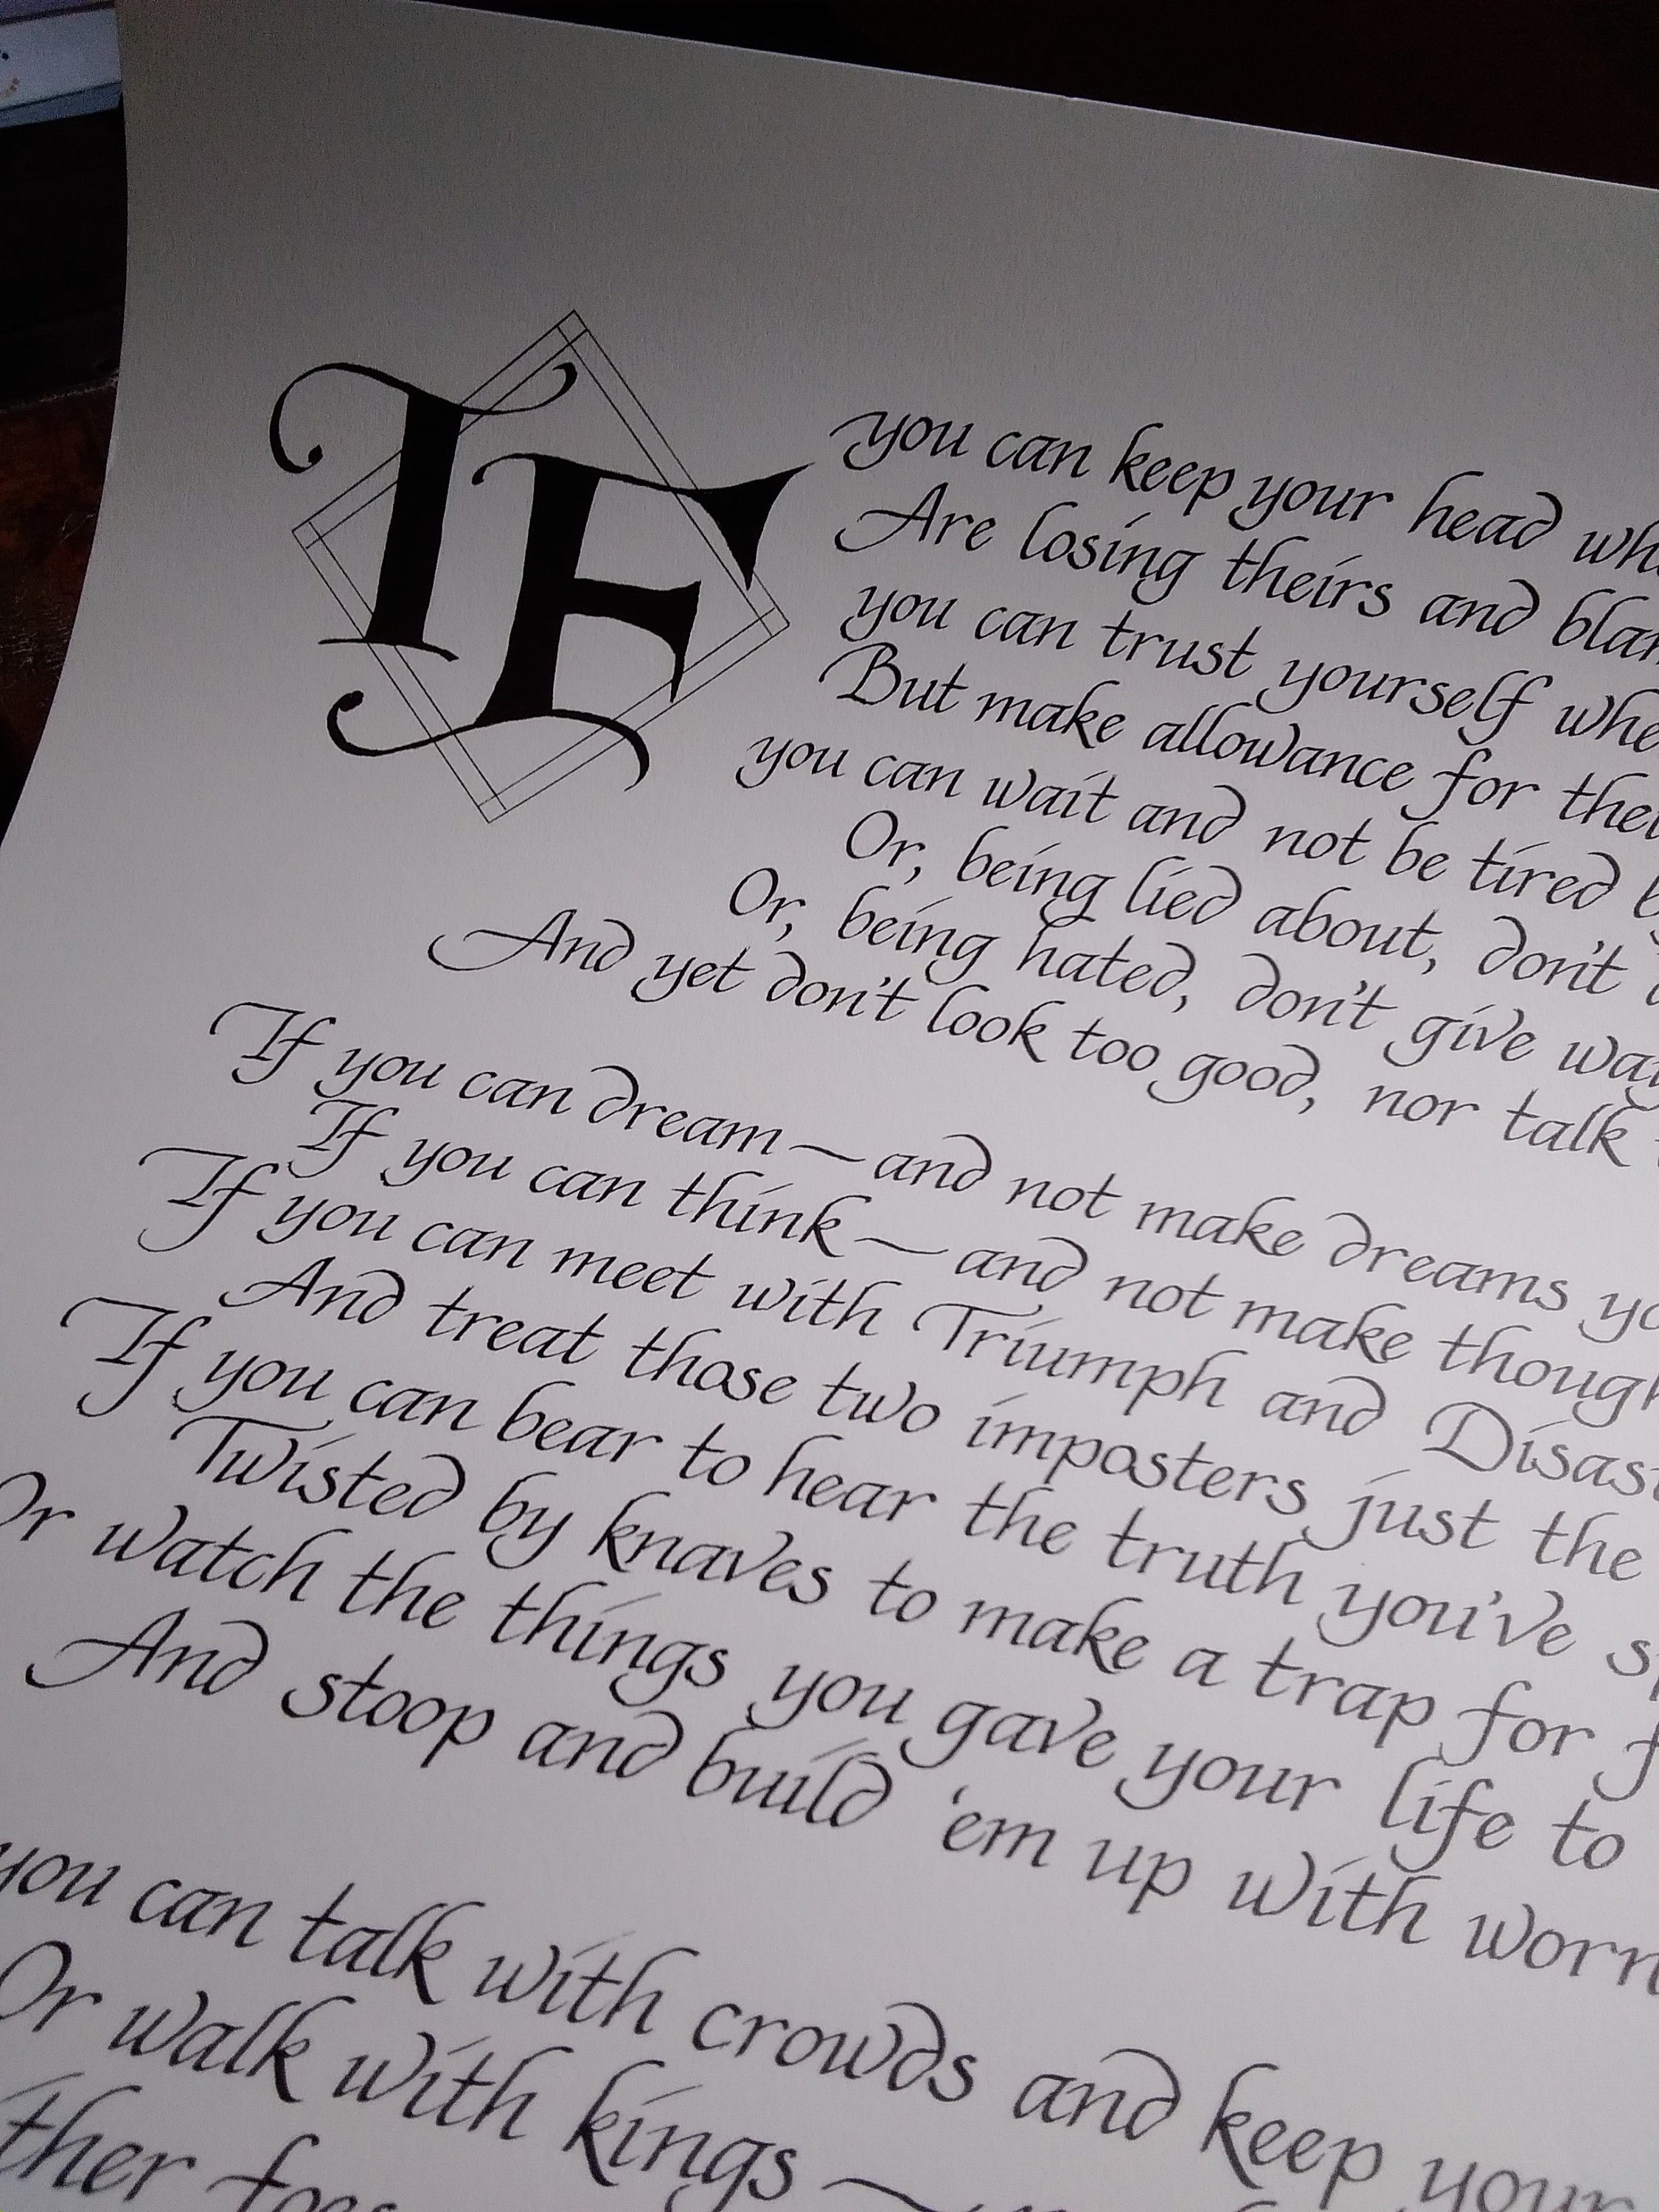 IF you can keep your head
Are losing theirs and
you can trust yourself
But make allowance for
you can wait and not be tired
Or, being lied about, don't
Or, being hated, don't give
And yet don't look too good, nor talk
If you can dream — and not make dreams
If you can think — and not make
If you can meet with Triumph and
And treat those two imposters just the
If you can bear to hear the truth you've
Twisted by knaves to make a trap for
Or watch the things you gave your life to
And stoop and build 'em up with
you can talk with crowds and keep your
Or walk with kings —